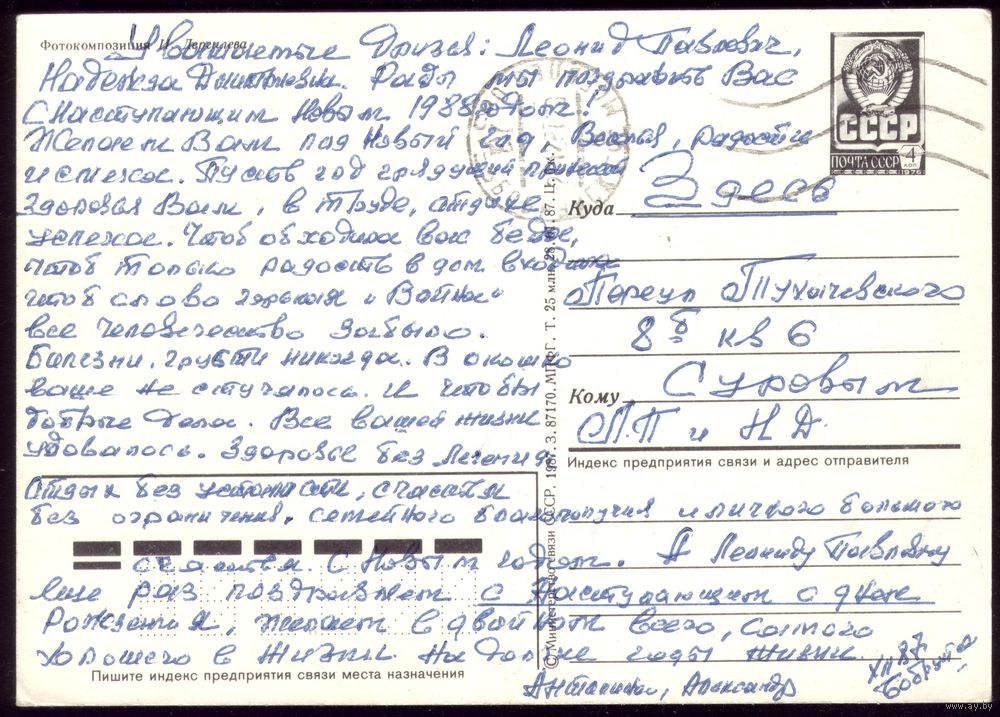 Фотокомпозиция И. Дергилева
Уважаемые Друзья: Леонид Павлович,
Надежда Дмитриевна. Рады мы поздравить Вас
С Наступающим Новым 1988 годом.
Желаем Вам под Новый год Веселья, радости
и успехов. Пусть год грядущий принесет
Здоровья Вам, в труде, отдыхе
успехов. Чтоб обходила вас беда,
чтоб только радость в дом входила
чтоб слово горькая "Война"
все человечество забыло.
Болезни, грусти никогда. В окошко
ваше не стучалось. И чтобы
добрые дела. Все вашей жизни
удавалось. Здоровье без лечения
отдых без усталости, счастья
без ограничения. семейного благополучия и личного большого
счастья. С Новым годом. А Леониду Павловичу
еще раз поздравляем с Наступающим с днем
Рождения, желаем в двойном всего, самого
хорошего в жизни. На долгие годы жизни.
Александр
XII 87
Бобруйск
СССР
ПОЧТА СССР
4 коп
1976
Куда Здесь
Переул Тухачевского
8б кв 6
Кому Суровым
Л.П и Н.Д.
Индекс предприятия связи и адрес отправителя
Пишите индекс предприятия связи места назначения
© Министерство связи СССР, 1987. З. 87170. МПФГ. Т. 25 млн.